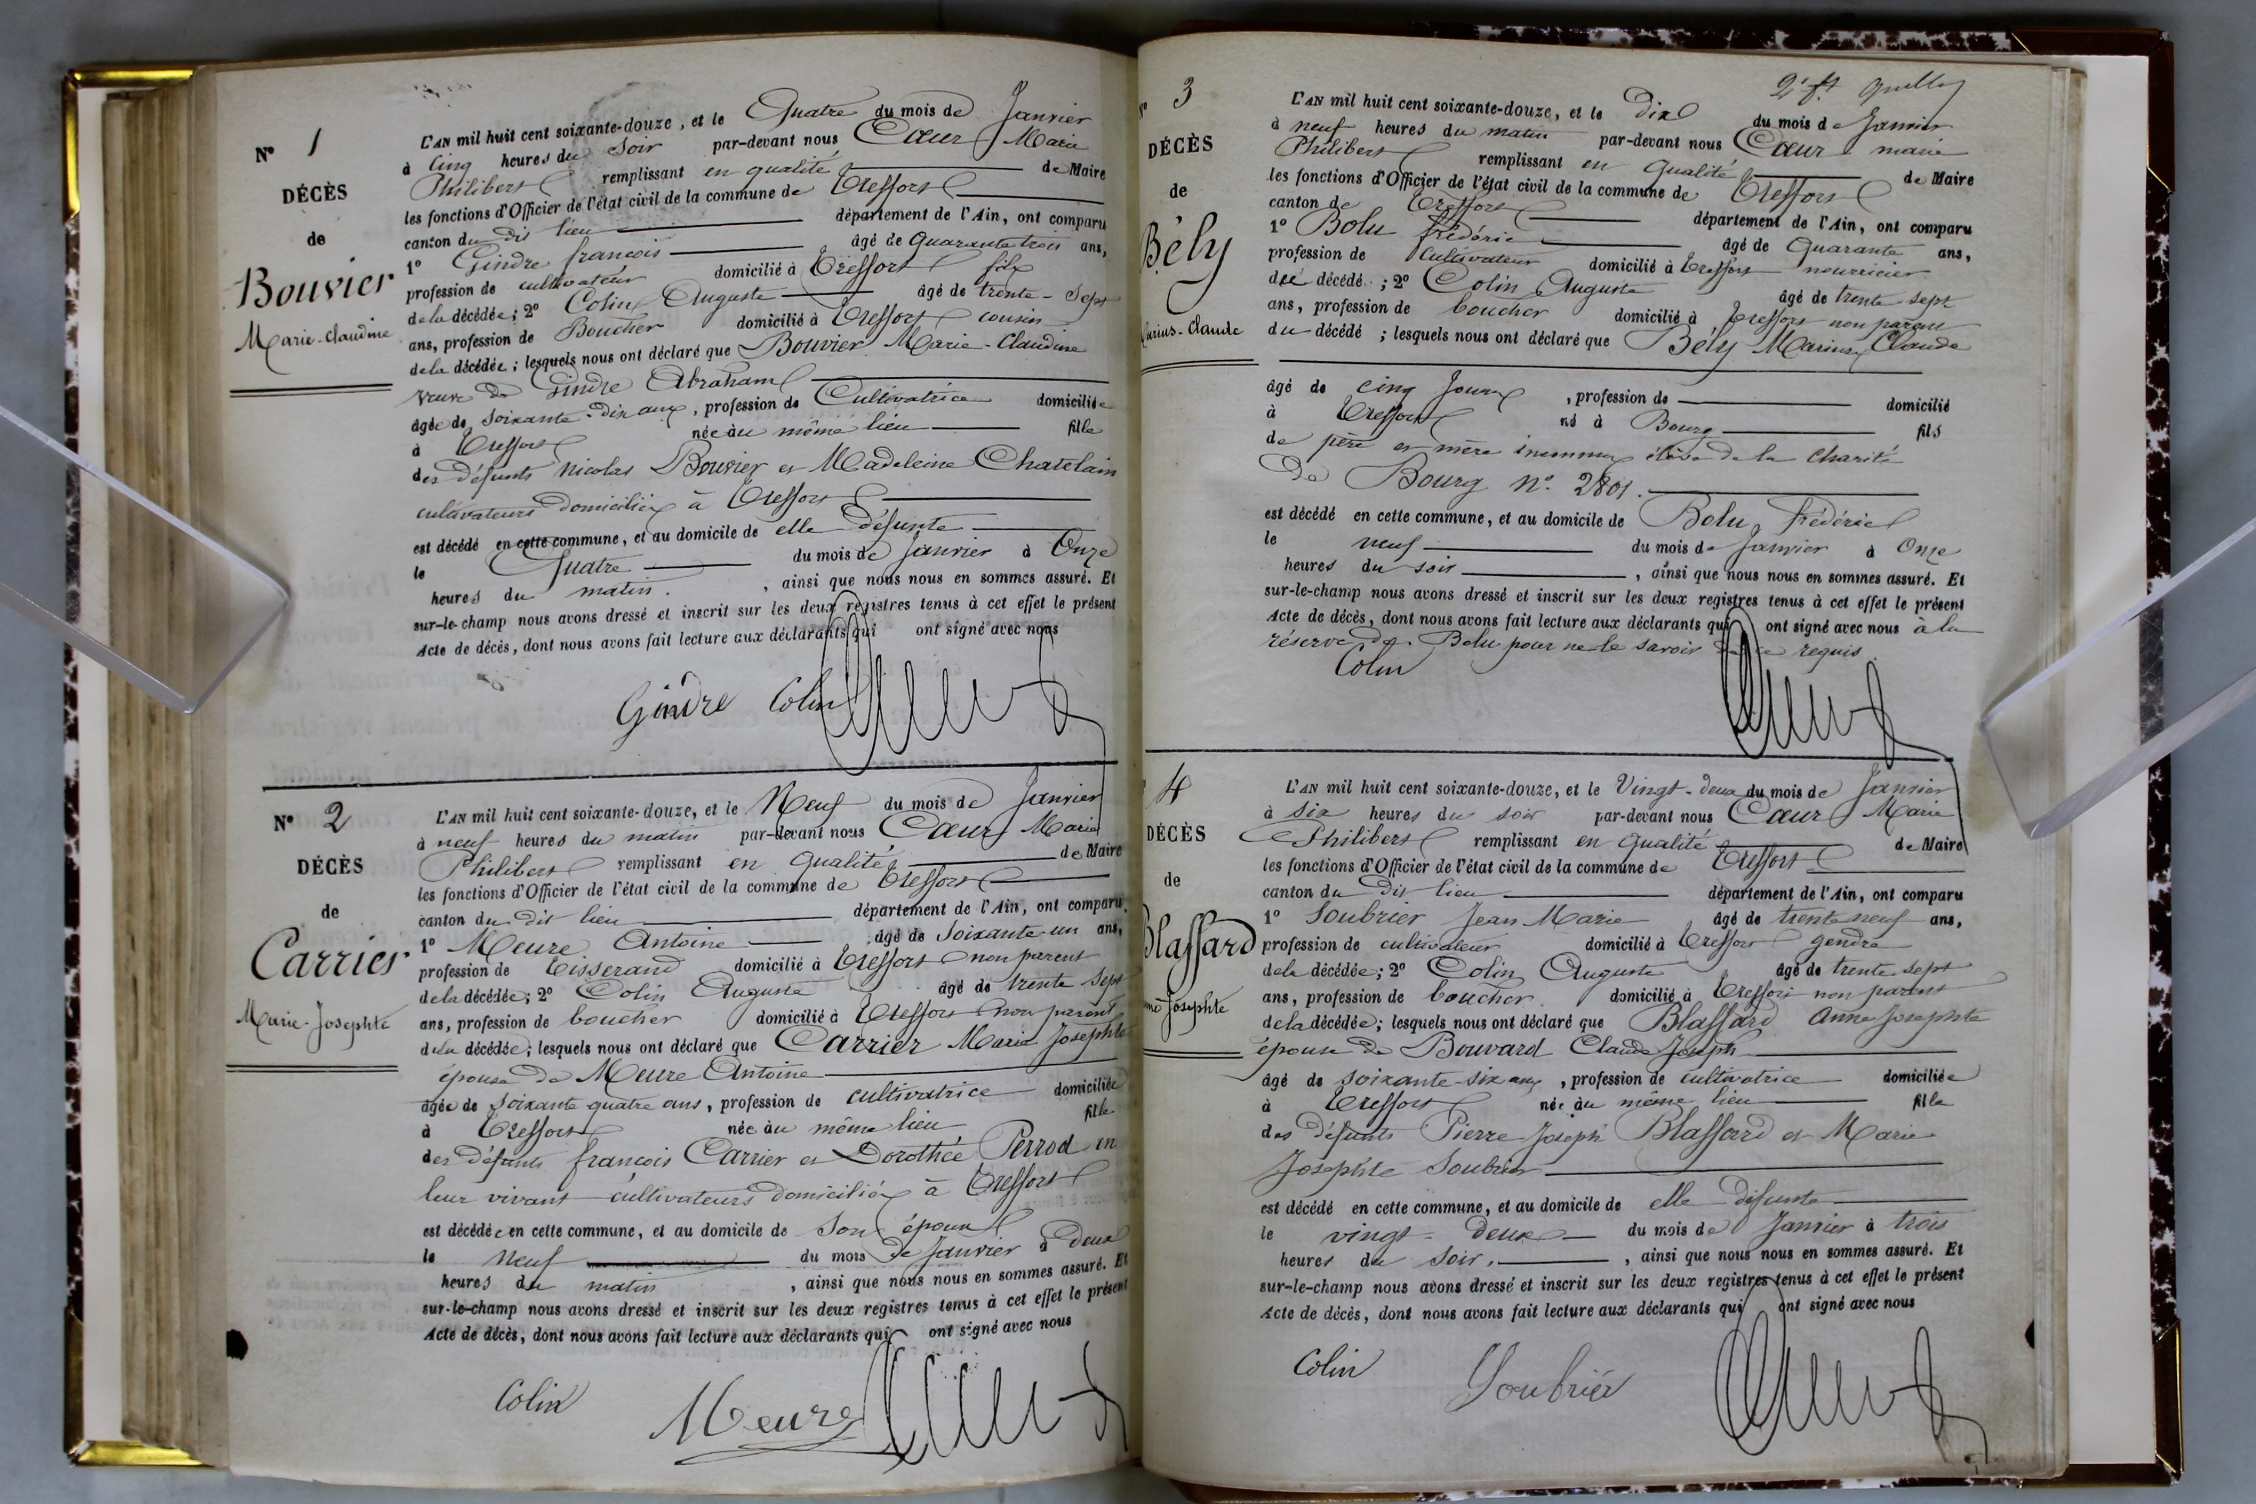 N° 1
DÉCÈS
de
Bouvier
Marie-Claudine
L'AN mil huit cent soixante-douze, et le Quatre du mois de Janvier
à Cinq heures du Soir par-devant nous Cœur Marie
Philibert remplissant en qualité de Maire
les fonctions d'Officier de l'état civil de la commune de Treffort
canton du dit lieu département de l'Ain, ont comparu
1° Gindre françois âgé de Quarante trois ans,
profession de cultivateur domicilié à Treffort fils
de la décédée; 2° Colin Auguste âgé de trente-Sept
ans, profession de Boucher domicilié à Treffort cousin
de la décédée; lesquels nous ont déclaré que Bouvier Marie-Claudine
veuve de Gindre Abraham
âgée de soixante-dix ans, profession de Cultivatrice domiciliée
à Treffort née au même lieu fille
des défunts Nicolas Bouvier et Madeleine Chatelain
cultivateurs domiciliés à Treffort
est décédé en cette commune, et au domicile de elle défunte
le Quatre du mois de Janvier à Onze
heures du matin. , ainsi que nous nous en sommes assuré. Et
sur-le-champ nous avons dressé et inscrit sur les deux registres tenus à cet effet le présent
Acte de décès, dont nous avons fait lecture aux déclarants qui ont signé avec nous
Gindre Colin Cœur
N° 2
DÉCÈS
de
Carrier
Marie-Josephte
L'AN mil huit cent soixante-douze, et le Neuf du mois de Janvier
à neuf heures du matin par-devant nous Cœur Marie
Philibert remplissant en qualité de Maire
les fonctions d'Officier de l'état civil de la commune de Treffort
canton du dit lieu département de l'Ain, ont comparu
1° Meure Antoine âgé de Soixante-un ans,
profession de Tisserand domicilié à Treffort non parent
de la décédée; 2° Colin Auguste âgé de trente Sept
ans, profession de boucher domicilié à Treffort non parent
de la décédée; lesquels nous ont déclaré que Carrier Marie Josephte
épouse de Meure Antoine
âgée de soixante quatre ans, profession de cultivatrice domiciliée
à Treffort née au même lieu fille
des défunts françois Carrier et Dorothée Perrod en
leur vivant cultivateurs domiciliés à Treffort
est décédée en cette commune, et au domicile de son époux
le neuf du mois de Janvier à deux
heures du matin , ainsi que nous nous en sommes assuré. Et
sur-le-champ nous avons dressé et inscrit sur les deux registres tenus à cet effet le présent
Acte de décès, dont nous avons fait lecture aux déclarants qui ont signé avec nous
Colin Meure Cœur
N° 3
DÉCÈS
de
Bély
Marius-Claude
L'AN mil huit cent soixante-douze, et le Dix du mois de Janvier
à neuf heures du matin par-devant nous Cœur marie
Philibert remplissant en qualité de Maire
les fonctions d'Officier de l'état civil de la commune de Treffort
canton de Treffort département de l'Ain, ont comparu
1° Bolu frédéric âgé de Quarante ans,
profession de cultivateur domicilié à Treffort nourricier
du décédé; 2° Colin Auguste âgé de trente-sept
ans, profession de boucher domicilié à Treffort non parent
du décédé; lesquels nous ont déclaré que Bély Marius Claude
âgé de cinq Jours, profession de domicilié
à Treffort né à Bourg fils
de père et mère inconnus élève de la charité
de Bourg N° 2801.
est décédé en cette commune, et au domicile de Bolu frédéric
le neuf du mois de Janvier à Onze
heures du soir , ainsi que nous nous en sommes assuré. Et
sur-le-champ nous avons dressé et inscrit sur les deux registres tenus à cet effet le présent
Acte de décès, dont nous avons fait lecture aux déclarants qui ont signé avec nous à la
réserve de Bolu pour ne le savoir de ce requis.
Colin Cœur
4
DÉCÈS
de
Blaffard
Josephte
L'AN mil huit cent soixante-douze, et le Vingt-deux du mois de Janvier
à six heures du soir par-devant nous Cœur Marie
Philibert remplissant en qualité de Maire
les fonctions d'Officier de l'état civil de la commune de Treffort
canton du dit lieu département de l'Ain, ont comparu
1° Soubrier Jean Marie âgé de trente neuf ans,
profession de cultivateur domicilié à Treffort gendre
de la décédée; 2° Colin Auguste âgé de trente-sept
ans, profession de boucher. domicilié à Treffort non parent
de la décédée; lesquels nous ont déclaré que Blaffard Anne Josephte
épouse de Bouvard Claude Joseph
âgé de soixante-six ans, profession de cultivatrice domiciliée
à Treffort née au même lieu fille
des défunts Pierre-Joseph Blaffard et Marie
Josephte Soubrier
est décédé en cette commune, et au domicile de elle défunte
le vingt-deux du mois de Janvier à trois
heures du soir, , ainsi que nous nous en sommes assuré. Et
sur-le-champ nous avons dressé et inscrit sur les deux registres tenus à cet effet le présent
Acte de décès, dont nous avons fait lecture aux déclarants qui ont signé avec nous
Colin Soubrier Cœur